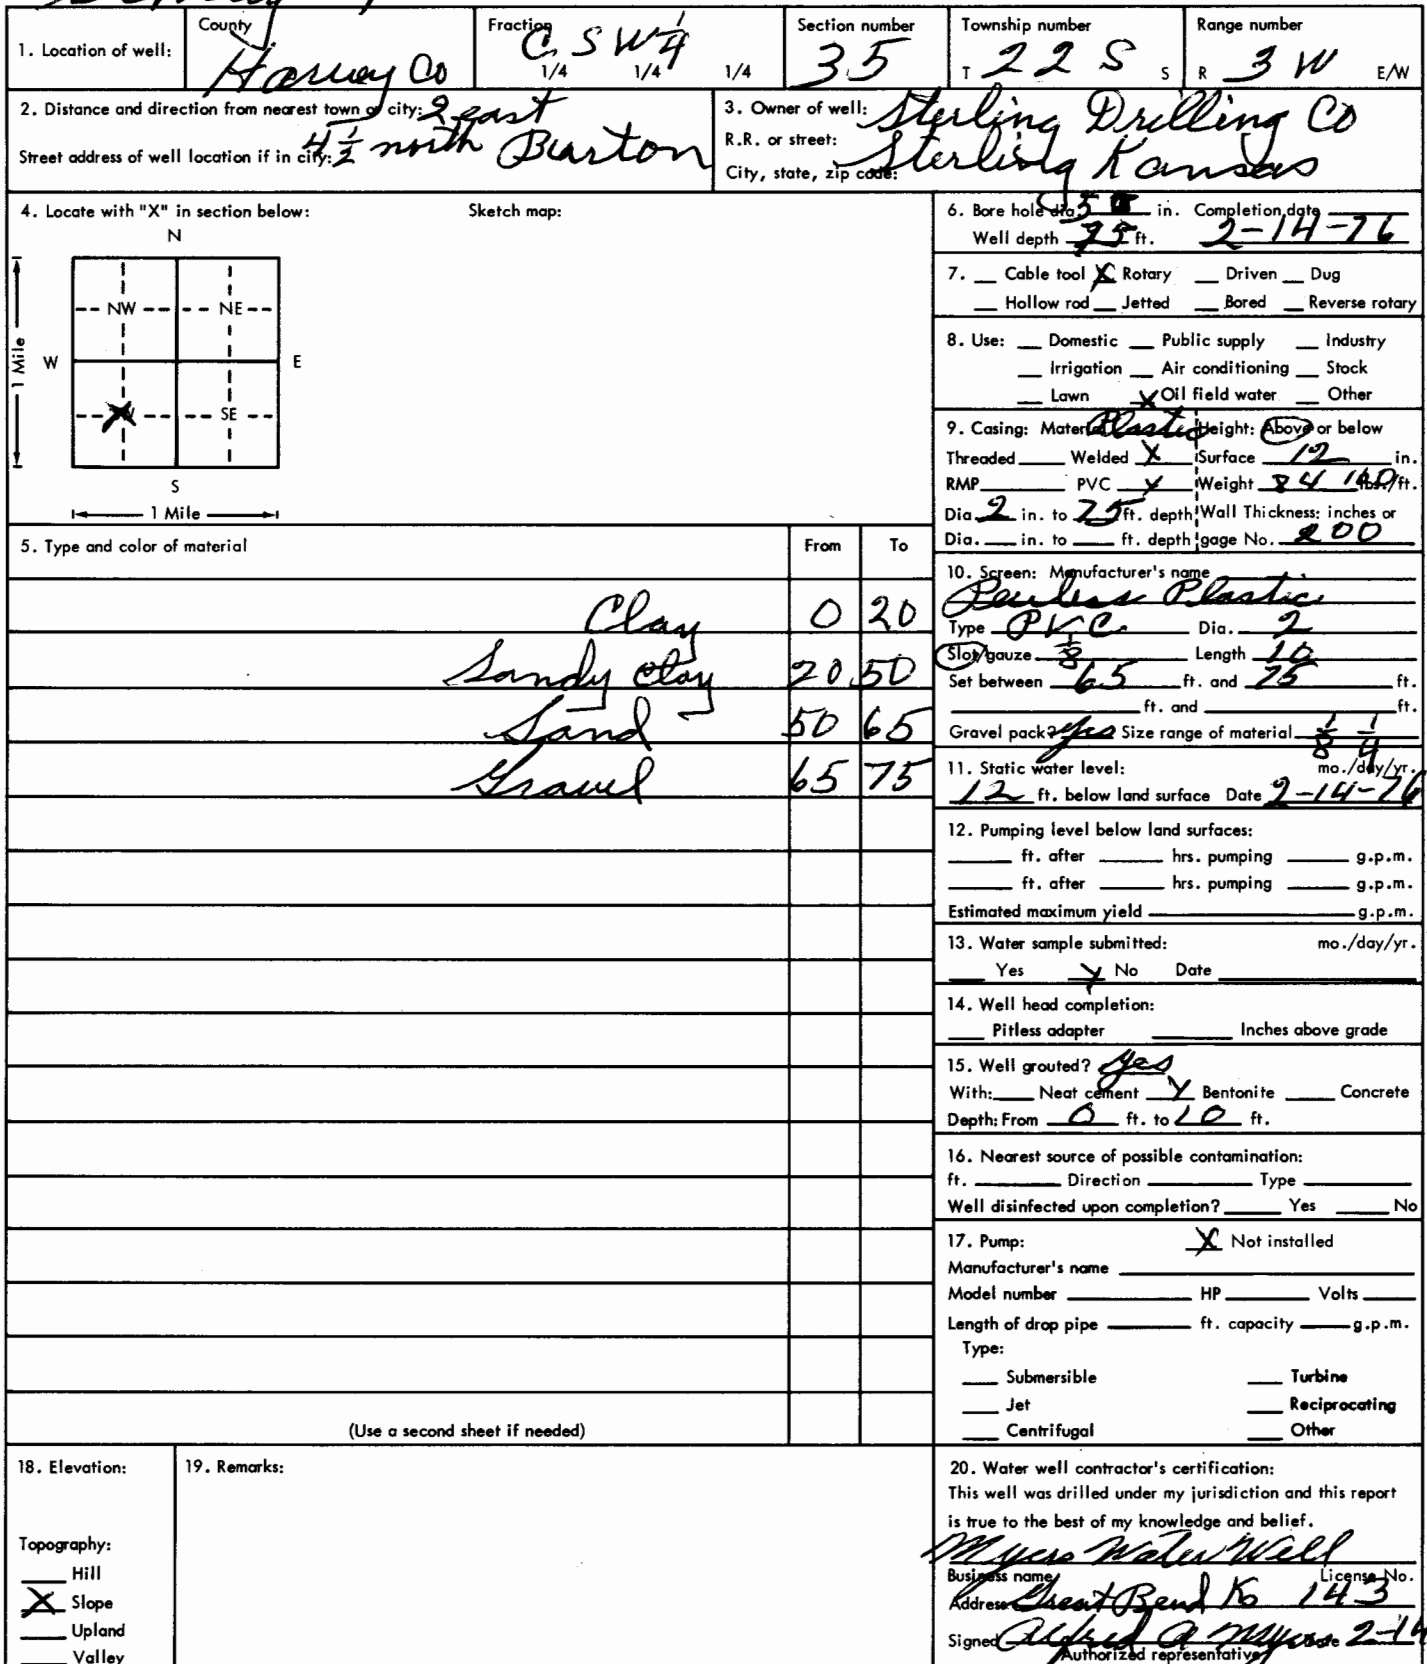 County Fraction Section number Township number Range number
1. Location of well: Harvey Co C SW 1/4 1/4 1/4 1/4 35 T 22 S S R 3 W E/W
2. Distance and direction from nearest town or city: 2 east
Street address of well location if in city: 4 1/2 north Burton
3. Owner of well: Sterling Drilling Co
R.R. or street:
City, state, zip code: Sterling Kansas
4. Locate with "X" in section below: Sketch map:
N
NW NE
W E
X SE
S
1 Mile
1 Mile
5. Type and color of material From To
Clay 0 20
Sandy Clay 20 50
Sand 50 65
Gravel 65 75
(Use a second sheet if needed)
6. Bore hole dia. 5 in. Completion date
Well depth 75 ft. 2-14-76
7. Cable tool X Rotary Driven Dug
Hollow rod Jetted Bored Reverse rotary
8. Use: Domestic Public supply Industry
Irrigation Air conditioning Stock
Lawn X Oil field water Other
9. Casing: Material Plastic Height: Above or below
Threaded Welded X Surface 12 in.
RMP PVC X Weight lbs./ft.
Dia. 2 in. to 75 ft. depth Wall Thickness: inches or
Dia. in. to ft. depth gage No. 200
10. Screen: Manufacturer's name
Peerless Plastic
Type PVC Dia. 2
Slot/gauze 1/8 Length 10
Set between 65 ft. and 75 ft.
ft. and ft.
Gravel pack? yes Size range of material 1/8 1/4
11. Static water level: mo./day/yr.
12 ft. below land surface Date 2-14-76
12. Pumping level below land surfaces:
ft. after hrs. pumping g.p.m.
ft. after hrs. pumping g.p.m.
Estimated maximum yield g.p.m.
13. Water sample submitted: mo./day/yr.
Yes X No Date
14. Well head completion:
Pitless adapter Inches above grade
15. Well grouted? yes
With: Neat cement X Bentonite Concrete
Depth: From 0 ft. to 10 ft.
16. Nearest source of possible contamination:
ft. Direction Type
Well disinfected upon completion? Yes No
17. Pump: X Not installed
Manufacturer's name
Model number HP Volts
Length of drop pipe ft. capacity g.p.m.
Type:
Submersible Turbine
Jet Reciprocating
Centrifugal Other
18. Elevation:
Topography:
Hill
X Slope
Upland
Valley
19. Remarks:
20. Water well contractor's certification:
This well was drilled under my jurisdiction and this report
is true to the best of my knowledge and belief.
Myers Water Well
Business name License No.
Address Great Bend Ks 143
Signed Alfred A Myers Date 2-14
Authorized representative